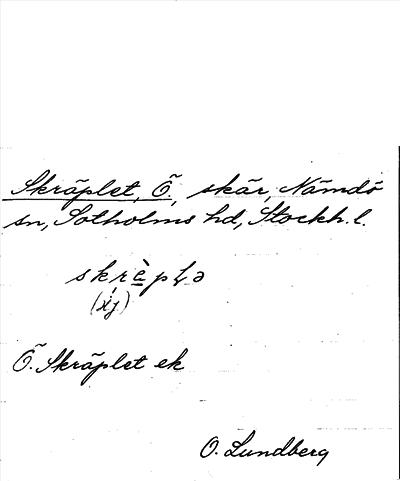 Skräplet, Ö, skär, Nämdö
sn, Sotholms hd, Stockh. l.
skràplə
Ö. Skräplet ek
O. Lundberg